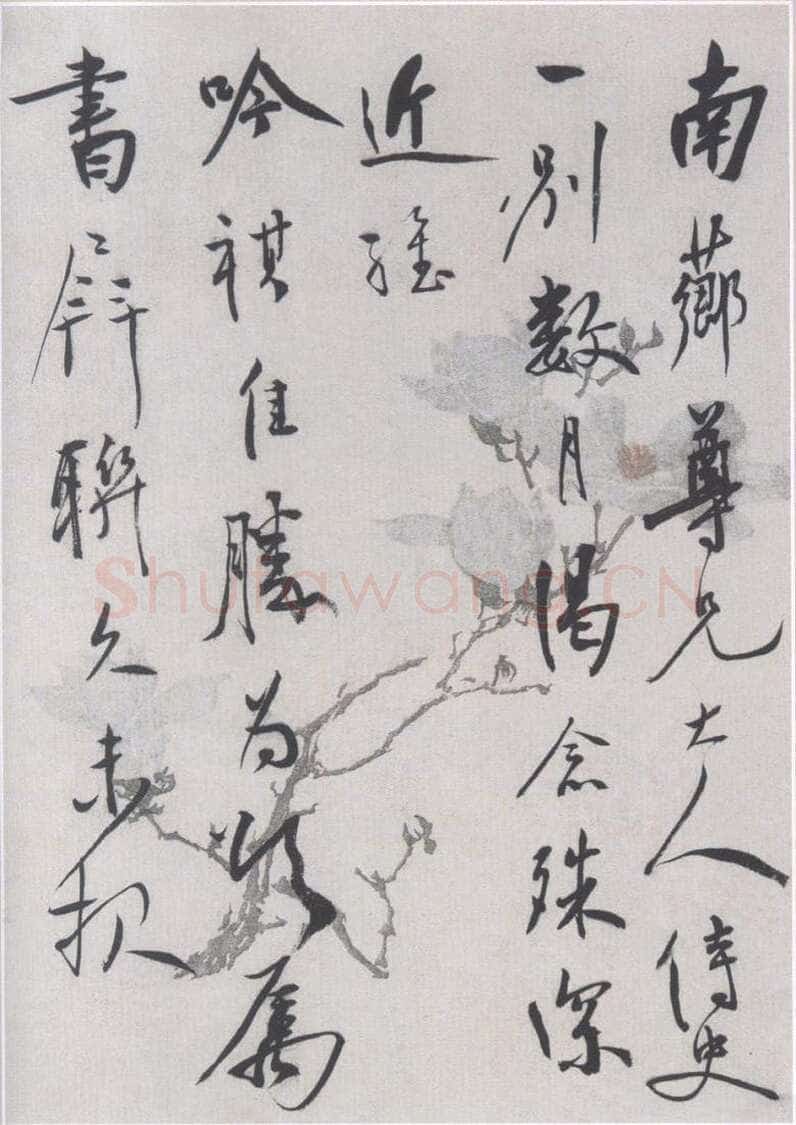 南薌尊兄大人侍史
一別數月渴念殊深
近維
吟祺佳勝為頌屬
書屏聯久未报
Shufawang.CN